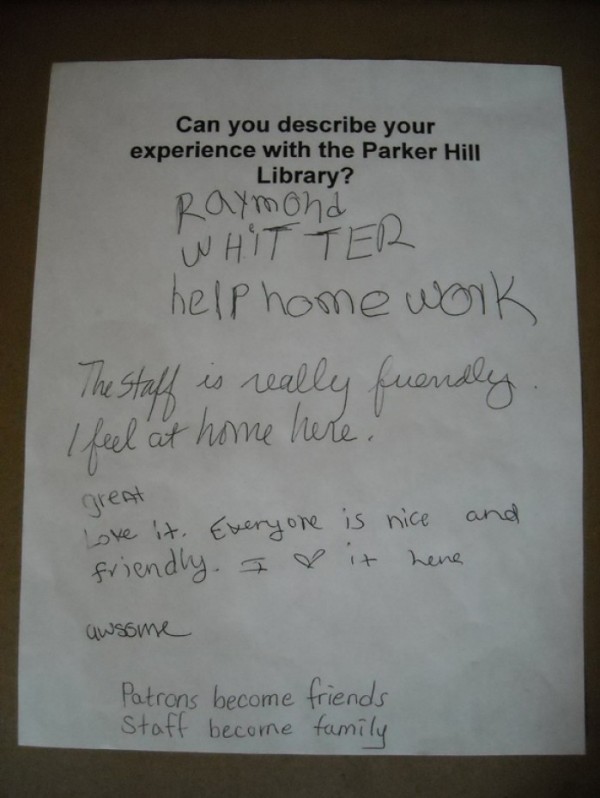 Can you describe your
experience with the Parker Hill
Library?
Raymond
WHITTER
help home work
The staff is really friendly.
I feel at home here.
great
Love it. Everyone is nice and
friendly. I ♡ it here
awssme
Patrons become friends
Staff become family